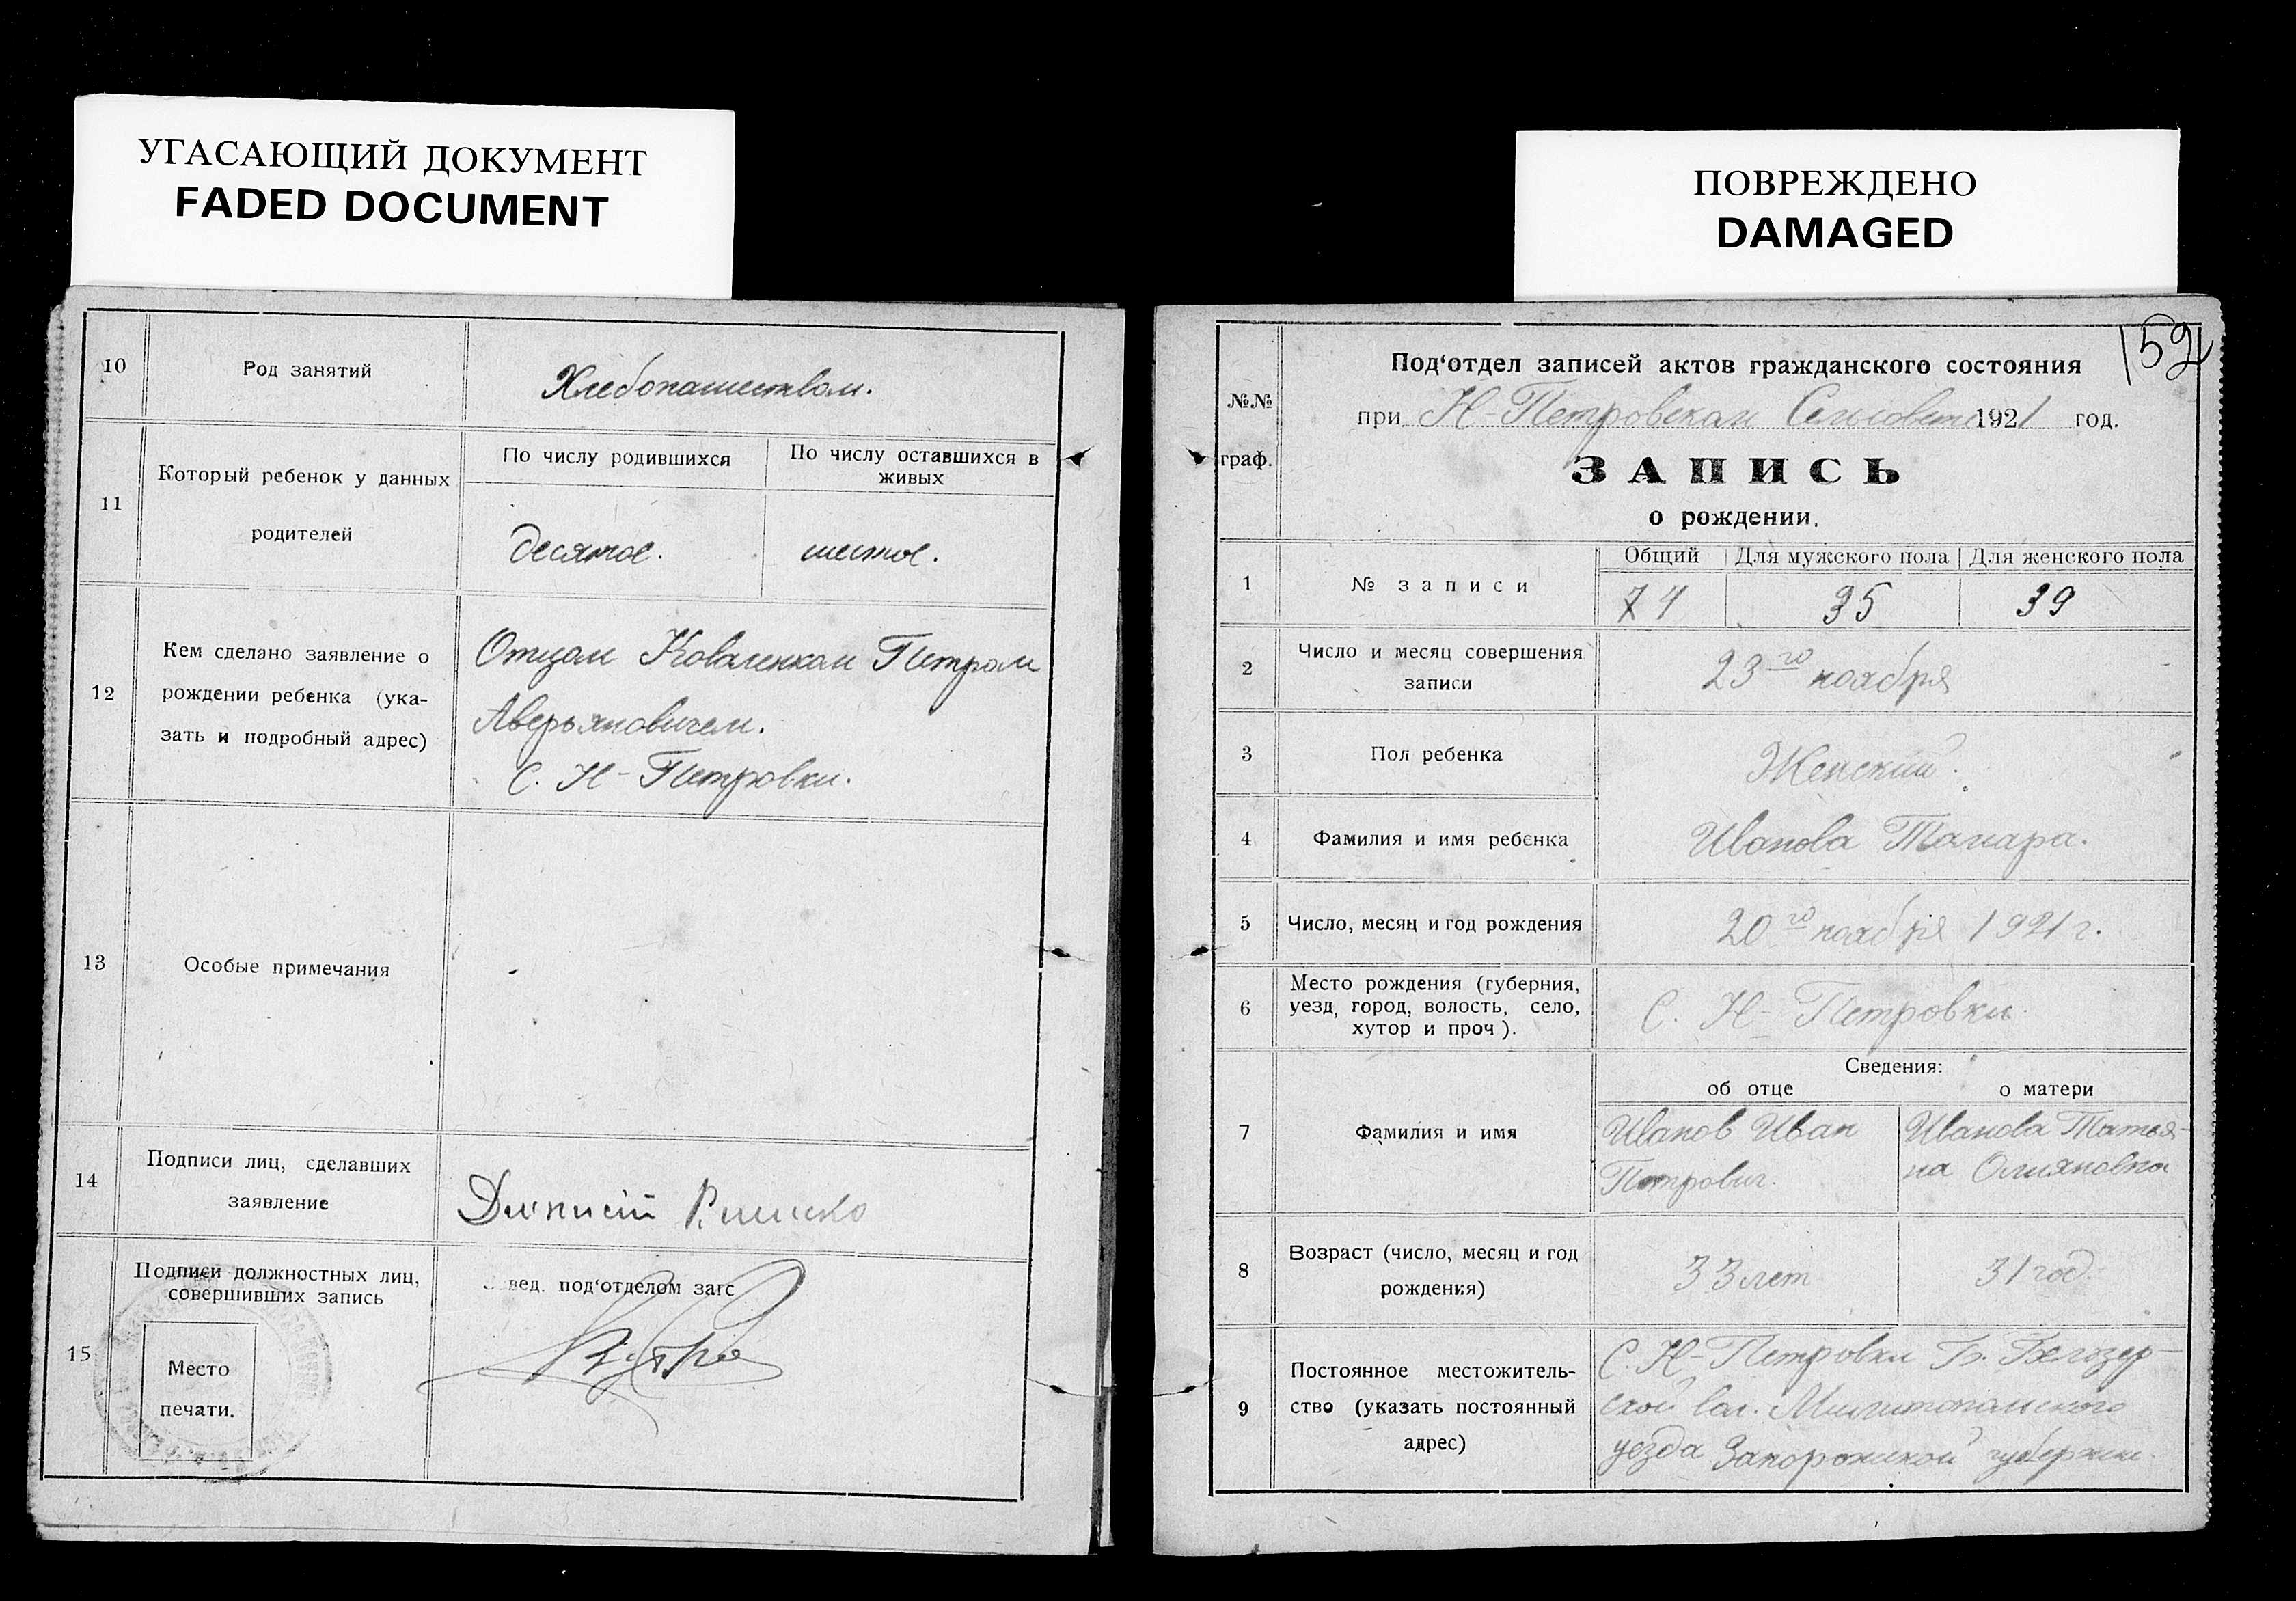 УГАСАЮЩИЙ ДОКУМЕНТ
FADED DOCUMENT
10
Род занятий
Хлебопашеством.
11
Который ребенок у данных
родителей
По числу родившихся
По числу оставшихся в
живых
десятое.
шестое.
12
Кем сделано заявление о
рождении ребенка (ука-
зать и подробный адрес)
Отцом Коваленком Петром
Аверьяновичем.
С. Н-Петровки.
13
Особые примечания
14
Подписи лиц, сделавших
заявление
15
Подписи должностных лиц,
совершивших запись
Место
печати.
вед. под'отделом загс
ПОВРЕЖДЕНО
DAMAGED
152
№№
граф.
Под'отдел записей актов гражданского состояния
при Н-Петровском Сельсовете 1921 год.
ЗАПИСЬ
о рождении.
1
№ записи
Общий
Для мужского пола
Для женского пола
74
35
39
2
Число и месяц совершения
записи
23го ноября
3
Пол ребенка
Женский.
4
Фамилия и имя ребенка
Иванова Тамара.
5
Число, месяц и год рождения
20го ноября 1921 г.
6
Место рождения (губерния,
уезд, город, волость, село,
хутор и проч).
С. Н-Петровки.
Сведения:
об отце
о матери
7
Фамилия и имя
Иванов Иван
Петрович.
Иванова Татья-
на
8
Возраст (число, месяц и год
рождения)
33 лет
31 год.
9
Постоянное местожитель-
ство (указать постоянный
адрес)
С. Н-Петровки Б. Белозер-
ской вол. Мелитопольского
уезда Запорожской губернии.